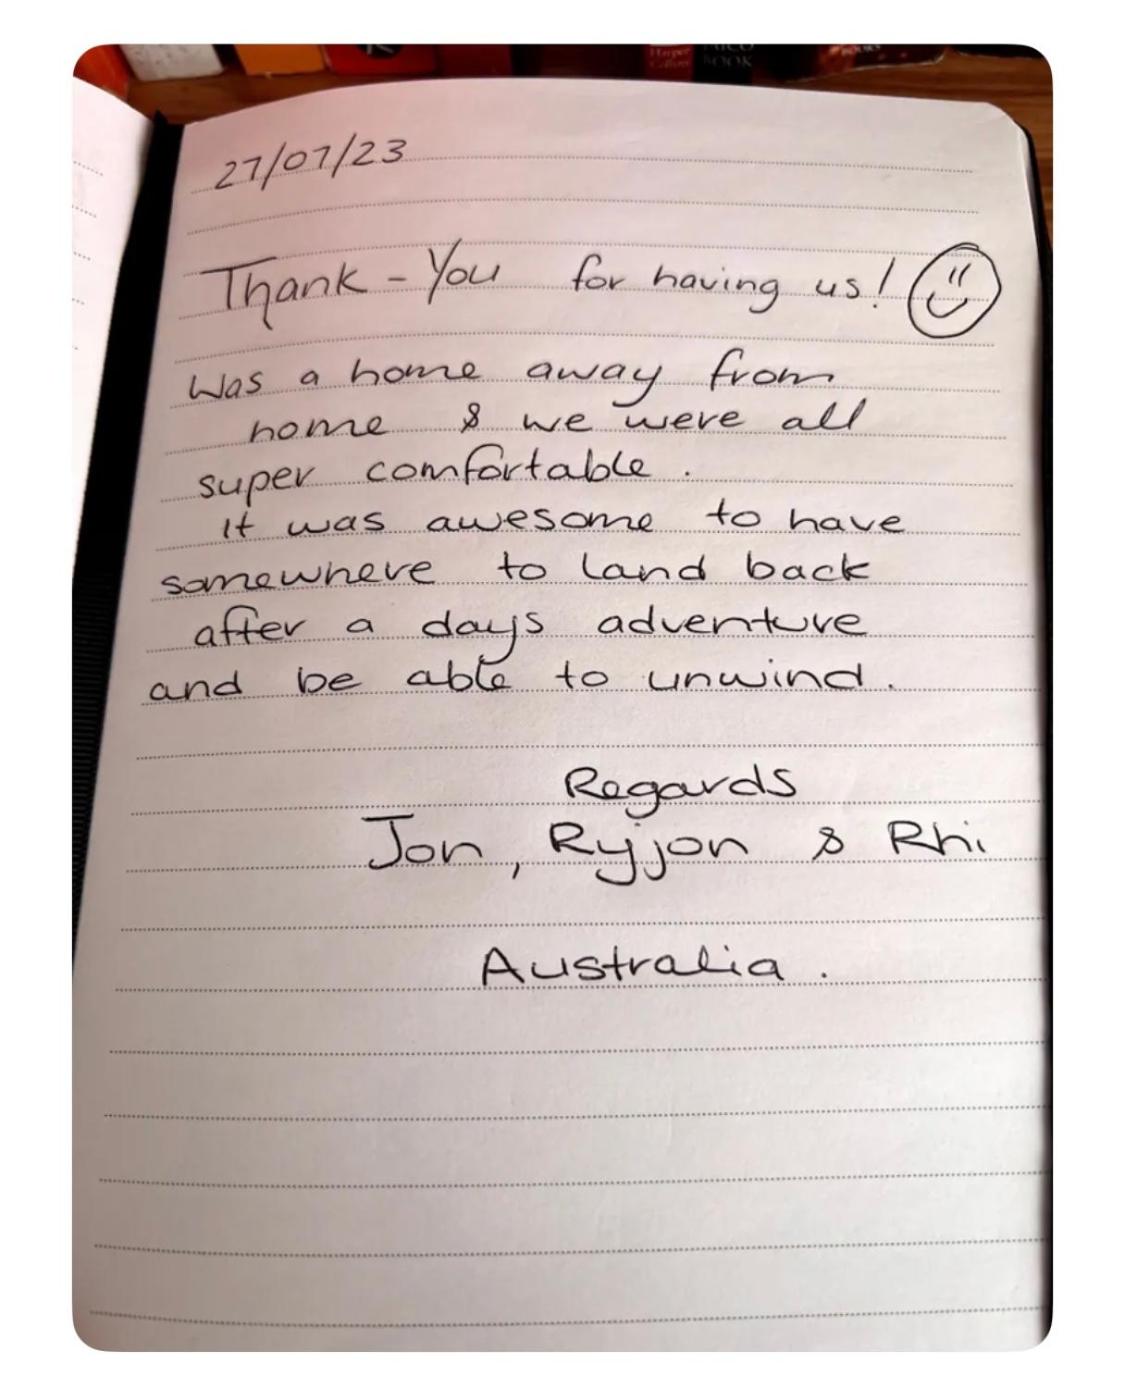 Harper
Collins
BOOK
27/07/23
Thank - You for having us!
Was a home away from
home & we were all
super comfortable.
It was awesome to have
somewhere to land back
after a days adventure
and be able to unwind.
Regards
Jon, Ryjon & Rhi
Australia.